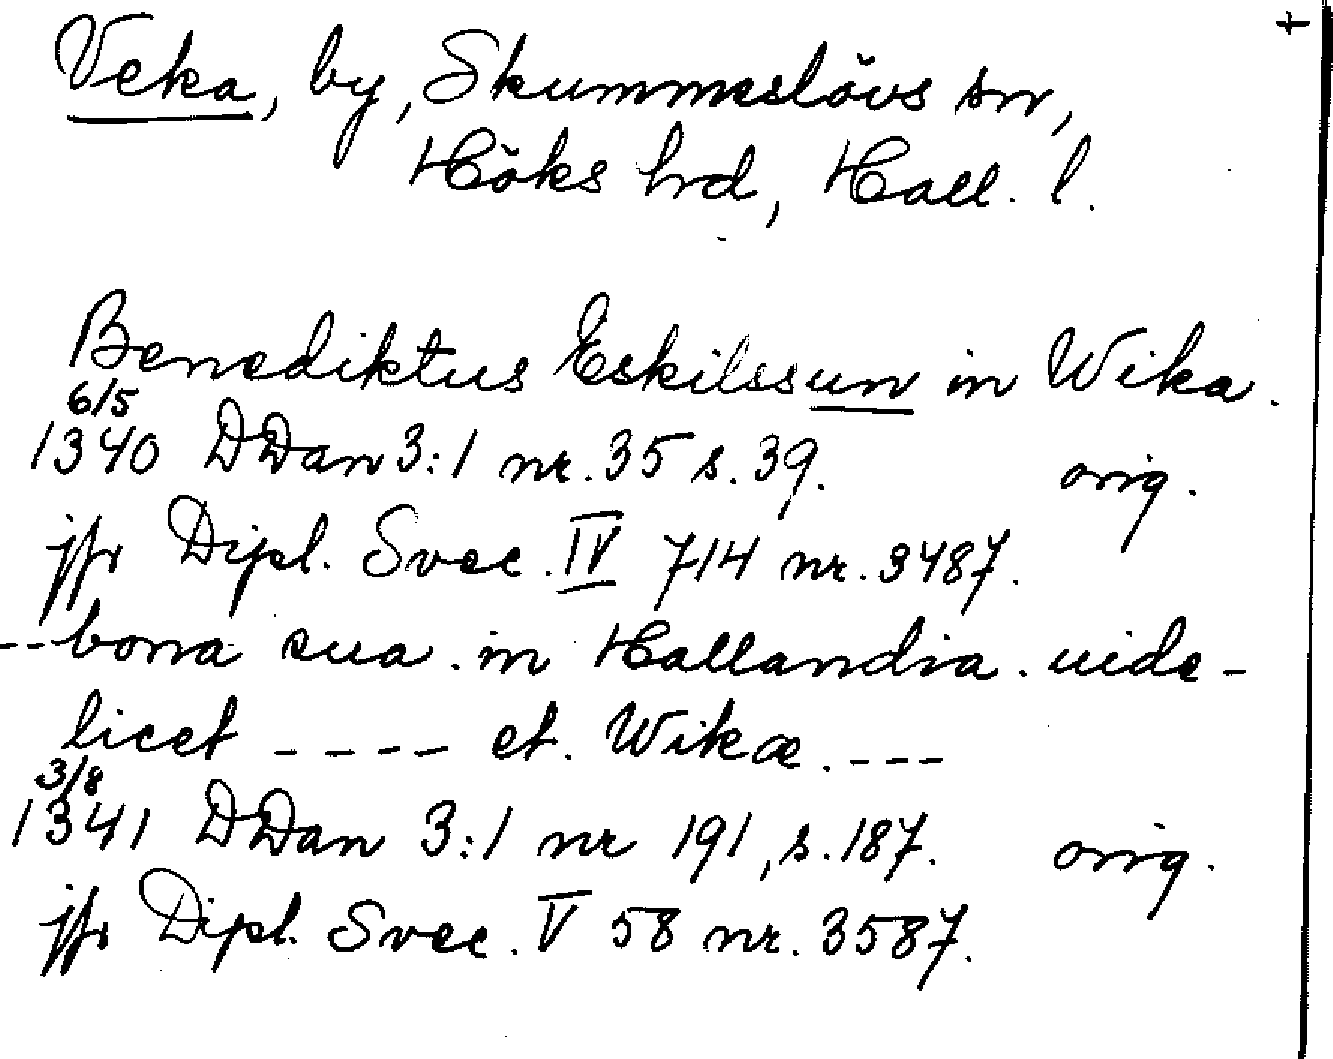 +
Veka, by, Skummeslövs sn,
Höks hrd, Hall. l.
Benediktus Eskilssun in Wika.
6/5
1340 DDan 3:1 nr. 35 s. 39. orig.
jfr Dipl. Svec. IV 714 nr. 3487.
--bona sua. in Hallandia. uide-
licet ---- et. Wikæ. ---
3/8
1341 DDan 3:1 nr 191, s. 187. orig.
jfr Dipl. Svec. V 58 nr. 3587.